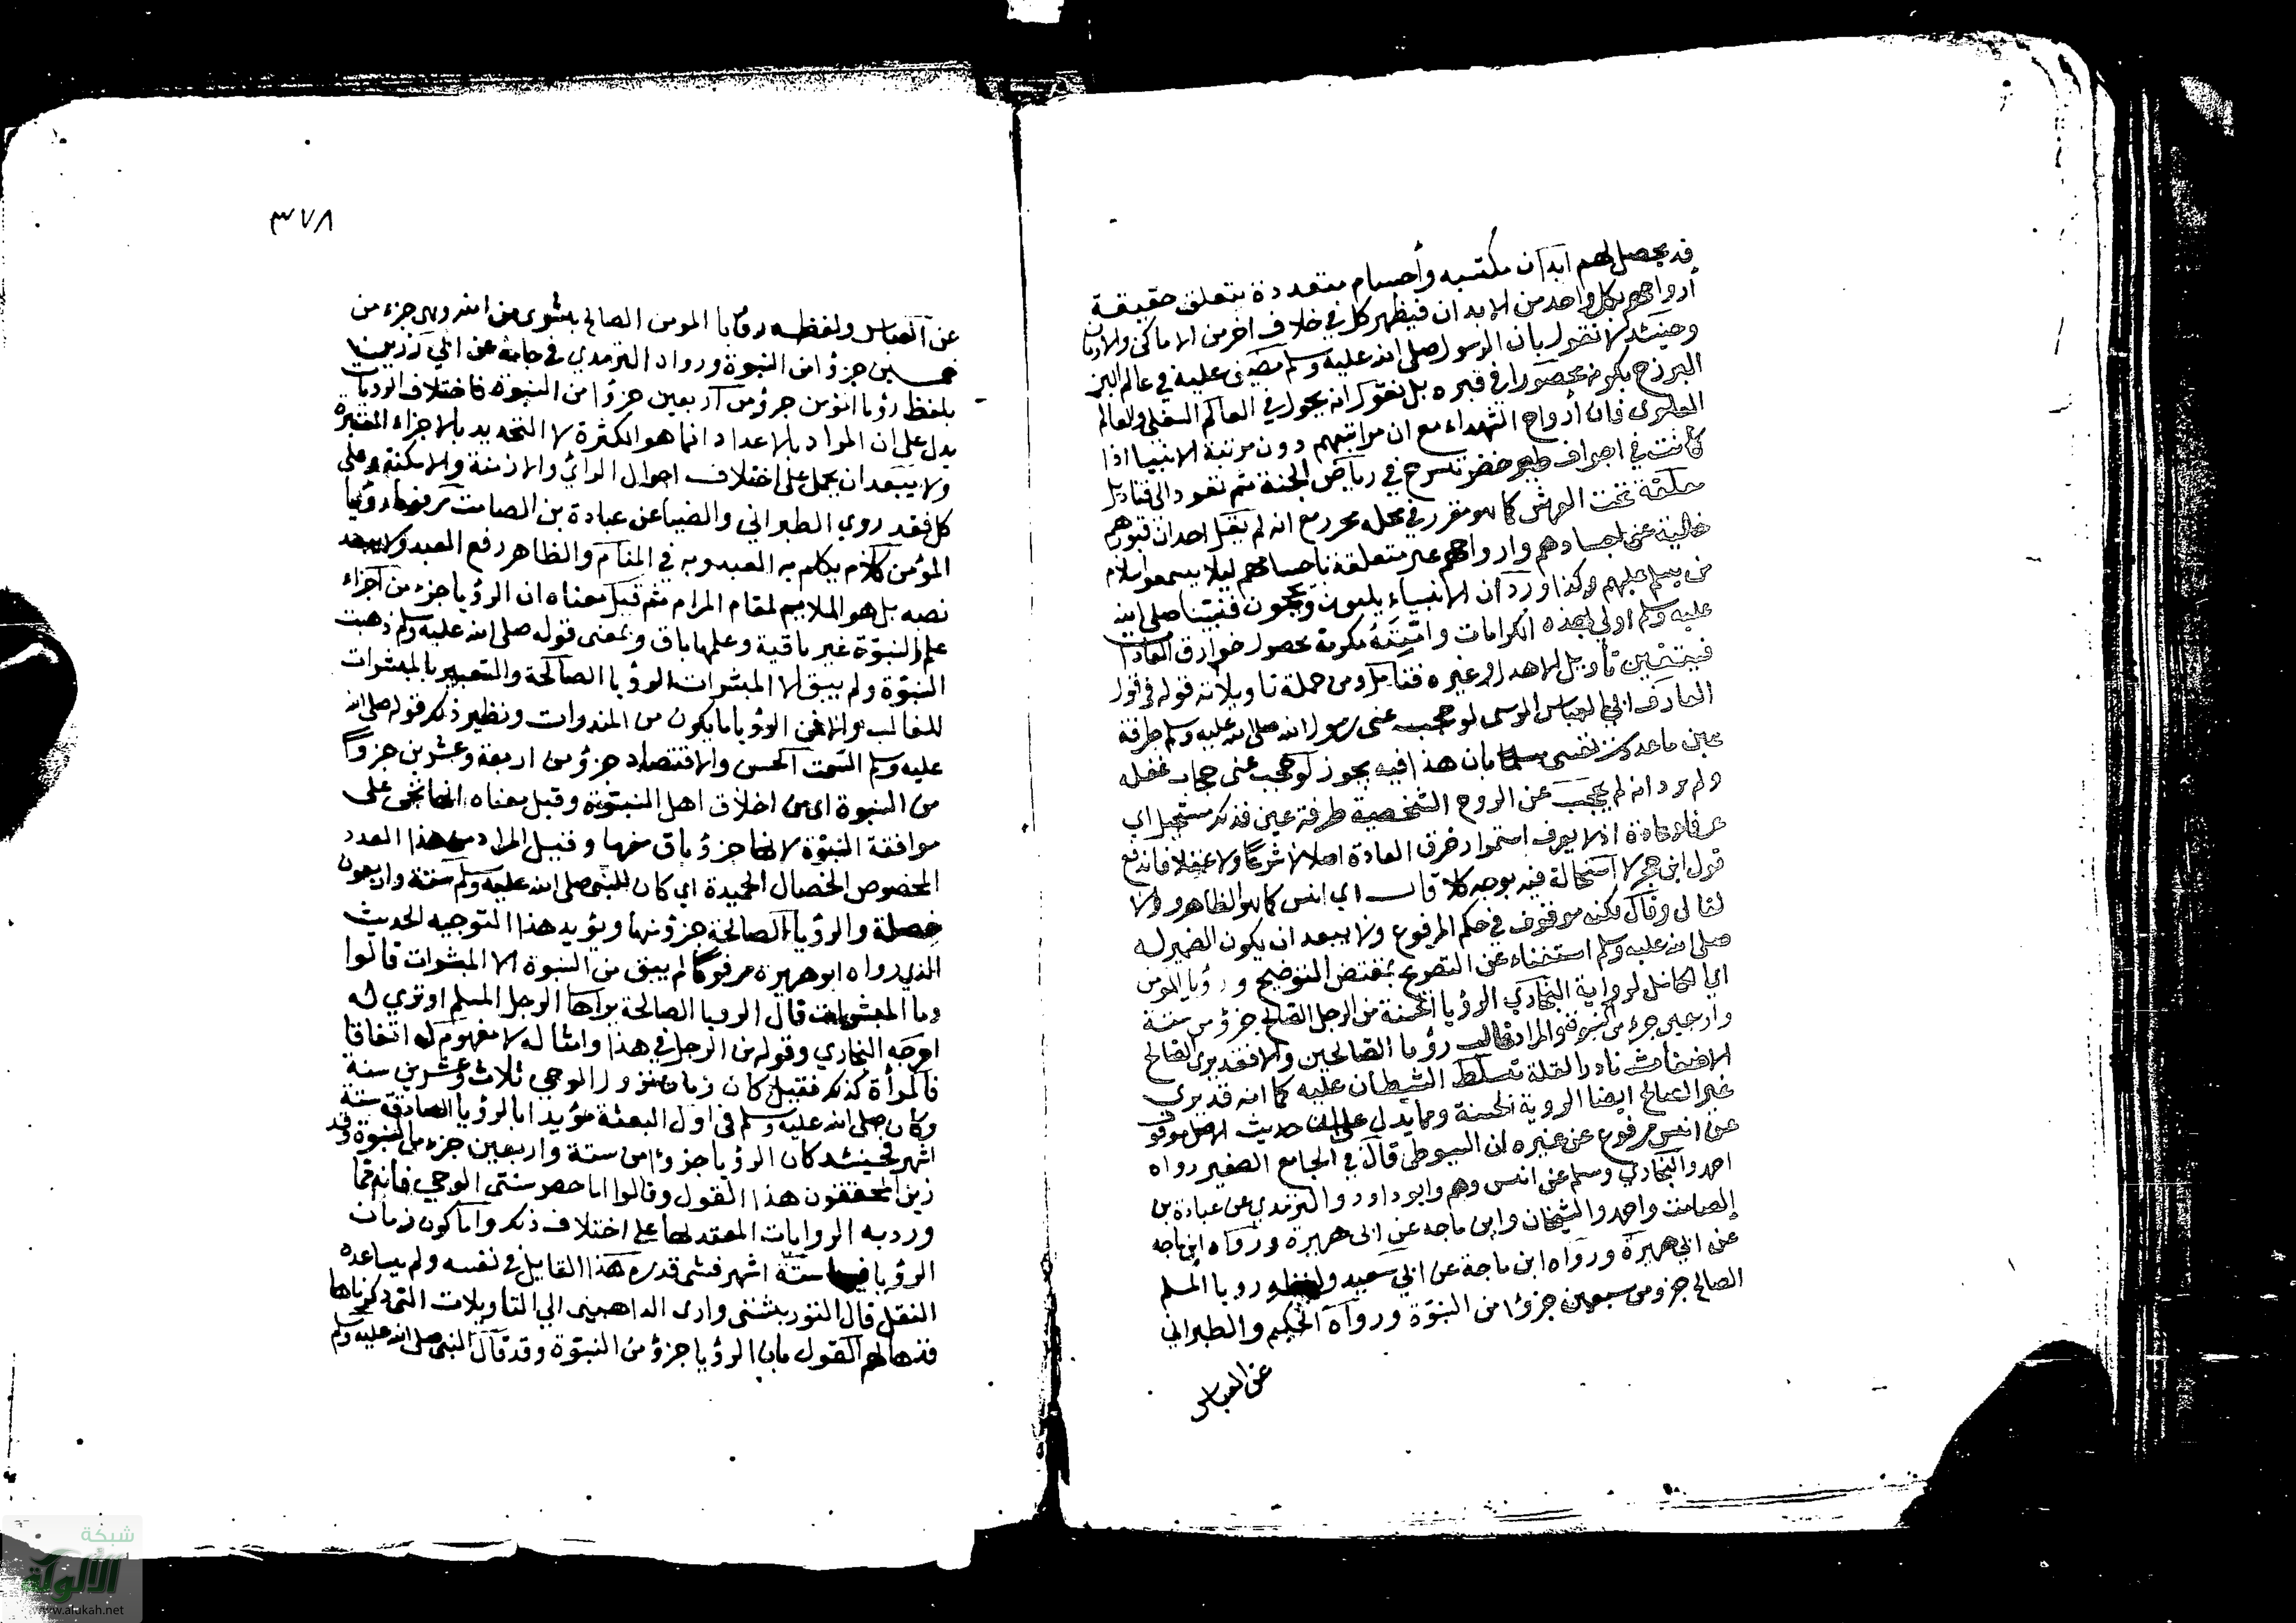 قد يحصل لهم ابدان مكتسبه وأجسام متعددة يتعلق حقيقة
أرواحهم بكل واحد من الابدان فيظهر كل في خلاف اخر من الاماكن والازمان
وحينئذ لا نقول بان الرسول صلى الله عليه وسلم مضيق عليه في عالم البرزخ
البرزخ بكونه محصورا في قبره بل نقول انه يجول في العالم السفلي والعالم
العلوي فان أرواح الشهداء مع ان مراتبهم دون مرتبة الانبيا اذا
كانت في اجواف طير خضر تسرح في رياض الجنة ثم تعود الى قناديل
معلقة تحت العرش كما هو مقرر في محله محرر مع انه لم يقل احد ان قبورهم
خالية عن اجسادهم وارواحهم غير متعلقة باجسامهم ليلا يسمعوا سلام
من يسلم عليهم وكذا ورد ان الانبياء يلبون ويحجون فنبينا صلى الله
عليه وسلم اولى بهذه الكرامات وامته مكرمة بحصول خوارق العادات
فيتعين تأويل الاهدل وغيره فتأمل ومن جملة تاويلاته قوله في قول
العارف ابي العباس المرسي لو حجب عني رسول الله صلى الله عليه وسلم طرفة
عين ما عددت نفسي مسلما بان هذا فيه تجوز لو حجب عني حجاب غفله
ولم يرد انه لم يحجب عن الروح الشخصية طرفة عين فذلك مستحيل اي
عرفا وعادة اذ لا يعرف استمرار خرق العادة اصلا لا شرعا ولا عقلا فاندفع
قول ابن حجر لا استحالة فيه بوجه كلا قال اي انس كما هو الظاهر والا
لقالى وقال لكنه موقوف في حكم المرفوع ولا يبعد ان يكون الضمير له
صلى الله عليه وسلم استغناء عن التصريح بمقتضى التوضيح ورؤيا المومن
اي الكامل لرواية البخاري الرؤيا الحسنة من الرجل الصالح جزؤ من ستة
واربعين جزء من النبوة والمراد غالب رؤيا الصالحين والا فقد يرى الصالح
الاضغاث نادرا لقلة تسلط الشيطان عليه كما انه قد يرى
غير الصالح ايضا الروية الحسنة ومما يدل على ان حديث الاصل موقوف
عن انس مرفوع عن غيره ان السيوطي قال في الجامع الصغير رواه
احمد والبخاري ومسلم عن انس وهم وابو داود والترمذي عن عبادة بن
الصامت واحمد والشيخان وابن ماجه عن ابي هريرة ورواه ابن ماجه
عن ابي هريرة ورواه ابن ماجة عن ابي سعيد ولفظه رويا المسلم
الصالح جزو من سبعين جزؤا من النبوة ورواه الحكيم والطبراني
عن العباس
٣٧٨
عن العباس ولفظه رؤيا المومن الصالح بشرى من الله وهي جزء من
خمسين جزؤا من النبوة ورواه الترمذي في جامعه عن ابي رزين
بلفظ رؤيا المؤمن جزؤ من اربعين جزؤا من النبوة فاختلاف الروايات
يدل على ان المراد بالاعداد انما هو الكثرة لا التحديد بالاجزاء المعتبرة
ولا يبعد ان يحمل على اختلاف احوال الرائي والازمنة والامكنة وعلى
كل فقد روى الطبراني والضيا عن عبادة بن الصامت مرفوعا رؤيا
المؤمن كلام يكلم به العبد ربه في المنام والظاهر رفع العبد ولا يبعد
نصبه بل هو الملايم لمقام المرام ثم قيل معناه ان الرؤيا جزء من اجزاء
علم النبوة غير باقية وعلمها باق وبمعنى قوله صلى الله عليه وسلم ذهبت
النبوة ولم يبق الا المبشرات الرؤيا الصالحة والتعبير بالمبشرات
للغالب والا فمن الرؤيا ما يكون من المنذرات ونظير ذلك قوله صلى الله
عليه وسلم السمت الحسن والاقتصاد جزؤ من اربعة وعشرين جزوا
من النبوة اي من اخلاق اهل النبوة وقيل معناه انها تجي على
موافقة النبوة لا انها جزؤ باق منها وقيل المراد من هذا العدد
المخصوص الخصال الحميدة اي كان للنبي صلى الله عليه وسلم ستة واربعون
خصلة والرؤيا الصالحة جزؤ منها ويؤيد هذا التوجيه الحديث
الذي رواه ابو هريرة مرفوعا لم يبق من النبوة الا المبشرات قالوا
وما المبشرات قال الرويا الصالحة يراها الرجل المسلم او ترى له
اخرجه البخاري وقوله من الرجل في هذا وامثاله لا مفهوم له اتفاقا
فالمرأة كذلك فقيل كان زمان نزول الوحي ثلاث وعشرين سنة
وكان صلى الله عليه وسلم في اول البعثة مؤيدا بالرؤيا الصادقة ستة
اشهر فحينئذ كان الرؤيا جزوءا من ستة واربعين جزء من النبوة وقد
زيف المحققون هذا القول وقالوا اما حصر سنتي الوحي فانه مما
ورد به الروايات المعتد لها على اختلاف ذلك واما كون زمان
الرؤيا فيها ستة اشهر فشى قدره هذا القايل في نفسه ولم يساعده
النقل قال التوربشتى وارى الذاهبين الى التاويلات التي ذكرناها
قد هالهم القول بان الرؤيا جزؤ من النبوة وقد قال النبي صلى الله عليه وسلم
شبكة
الألوكة
www.alukah.net